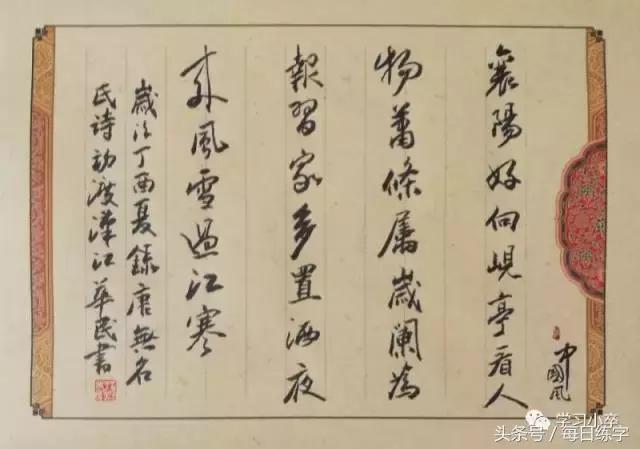 襄陽好向峴亭看人
物蕭條屬歲闌為
報習家多置酒夜
來風雪過江寒
歲次丁酉夏錄唐無名
氏詩初渡漢江華民書
中國風
学习小卒
头条号/每日练字